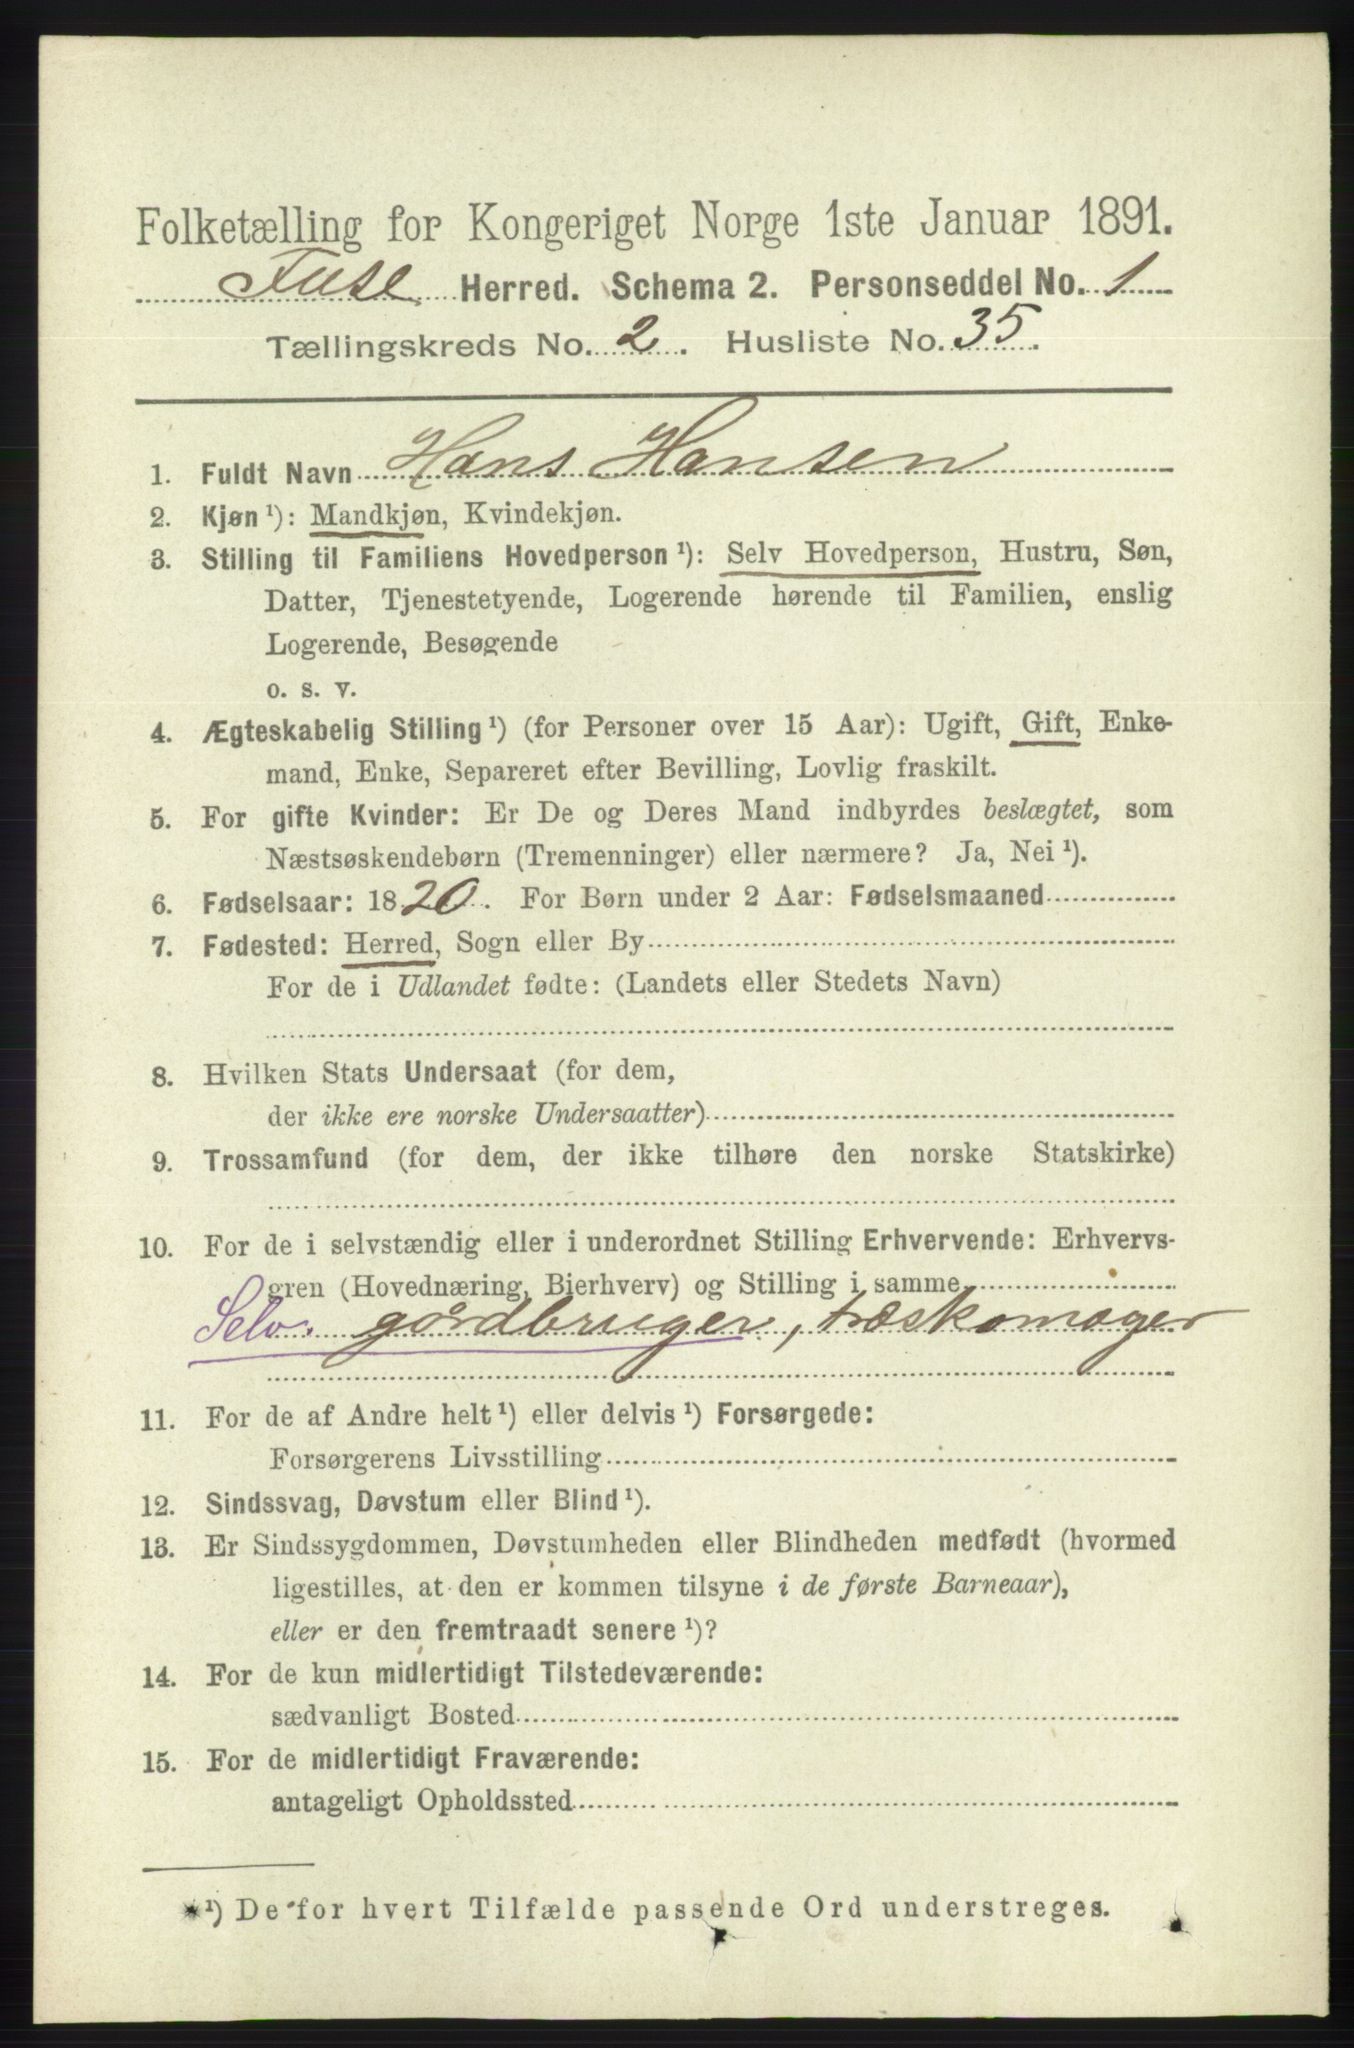 Folketælling for Kongeriget Norge 1ste Januar 1891.
Fuse Herred. Schema 2. Personseddel No. 1
Tællingskreds No. 2. Husliste No. 35.
1. Fuldt Navn Hans Hansen
2. Kjøn ¹): Mandkjøn, Kvindekjøn.
3. Stilling til Familiens Hovedperson ¹): Selv Hovedperson, Hustru, Søn,
Datter, Tjenestetyende, Logerende hørende til Familien, enslig
Logerende, Besøgende
o. s. v.
4. Ægteskabelig Stilling ¹) (for Personer over 15 Aar): Ugift, Gift, Enke-
mand, Enke, Separeret efter Bevilling, Lovlig fraskilt.
5. For gifte Kvinder: Er De og Deres Mand indbyrdes beslægtet, som
Næstsøskendebørn (Tremenninger) eller nærmere? Ja, Nei ¹).
6. Fødselsaar: 1820. For Børn under 2 Aar: Fødselsmaaned
7. Fødested: Herred, Sogn eller By
For de i Udlandet fødte: (Landets eller Stedets Navn)
8. Hvilken Stats Undersaat (for dem,
der ikke ere norske Undersaatter)
9. Trossamfund (for dem, der ikke tilhøre den norske Statskirke)
10. For de i selvstændig eller i underordnet Stilling Erhvervende: Erhvervs-
gren (Hovednæring, Bierhverv) og Stilling i samme
Selv. gårdbruger, træskomager
11. For de af Andre helt ¹) eller delvis ¹) Forsørgede:
Forsørgerens Livsstilling
12. Sindssvag, Døvstum eller Blind ¹).
13. Er Sindssygdommen, Døvstumheden eller Blindheden medfødt (hvormed
ligestilles, at den er kommen tilsyne i de første Barneaar),
eller er den fremtraadt senere ¹)?
14. For de kun midlertidigt Tilstedeværende:
sædvanligt Bosted
15. For de midlertidigt Fraværende:
antageligt Opholdssted
¹) De for hvert Tilfælde passende Ord understreges.